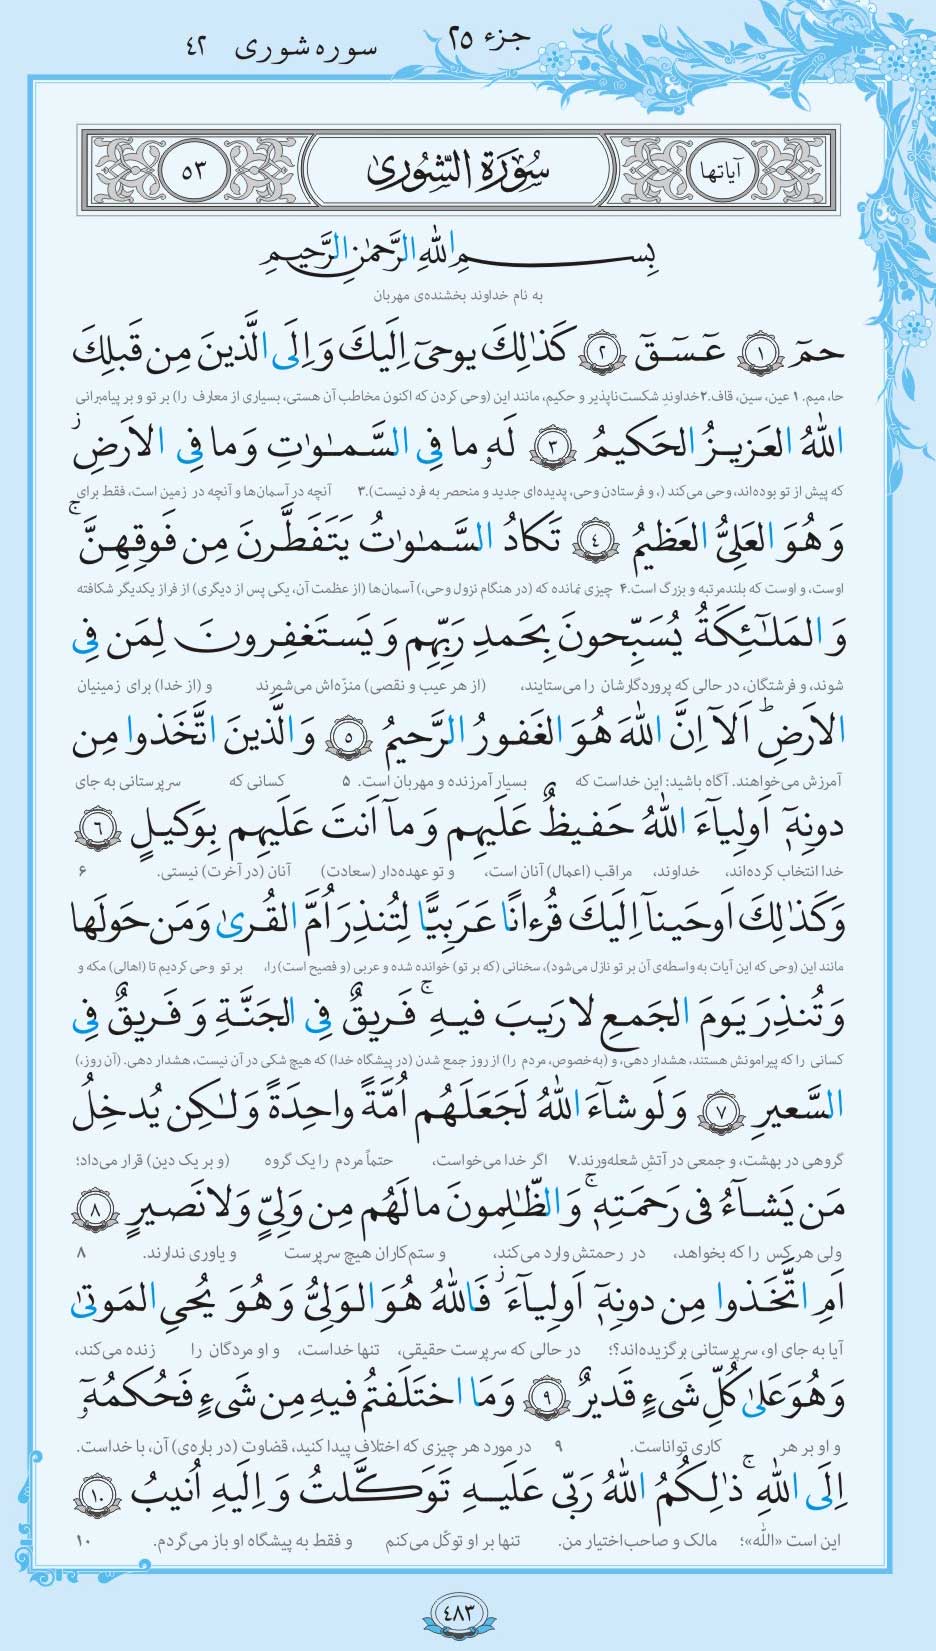 جزء ۲۵
سوره شوری ۴۲
آیاتها
سُوْرَةُ الشّورىٰ
۵۳
بِسمِ اللّٰهِ الرَّحمٰنِ الرَّحيمِ
به نام خداوند بخشنده‌ی مهربان
حمٓ ۱ عٓسٓقٓ ۲ كَذٰلِكَ يوحىٓ اِلَيكَ وَ اِلَى الَّذينَ مِن قَبلِكَ
حا، میم. ۱ عین، سین، قاف.۲ خداوندِ شکست‌ناپذیر و حکیم، مانند این (وحی کردن که اکنون مخاطب آن هستی، بسیاری از معارف را) بر تو و بر پیامبرانی
اللّٰهُ العَزيزُ الحَكيمُ ۳ لَهٗ ما فِى السَّمٰوٰتِ وَ ما فِى الاَرضِ ز
که پیش از تو بوده‌اند، وحی می‌کند (، و فرستادن وحی، پدیده‌ای جدید و منحصر به فرد نیست).۳ آنچه در آسمان‌ها و آنچه در زمین است، فقط برای
وَ هُوَ العَلِىُّ العَظيمُ ۴ تَكادُ السَّمٰوٰتُ يَتَفَطَّرنَ مِن فَوقِهِنَّ ج
اوست، و اوست که بلندمرتبه و بزرگ است.۴ چیزی نمانده که (در هنگام نزول وحی،) آسمان‌ها (از عظمت آن، یکی پس از دیگری) از فراز یکدیگر شکافته
وَ المَلٰٓئِكَةُ يُسَبِّحونَ بِحَمدِ رَبِّهِم وَ يَستَغفِرونَ لِمَن فِى
شوند، و فرشتگان، در حالی که پروردگارشان را می‌ستایند، (از هر عیب و نقصی) منزّه‌اش می‌شمرند و (از خدا) برای زمینیان
الاَرضِ ط اَلآ اِنَّ اللّٰهَ هُوَ الغَفورُ الرَّحيمُ ۵ وَ الَّذينَ اتَّخَذوا مِن
آمرزش می‌خواهند. آگاه باشید: این خداست که بسیار آمرزنده و مهربان است. ۵ کسانی که سرپرستانی به جای
دونِهٖٓ اَولِيآءَ اللّٰهُ حَفيظٌ عَلَيهِم وَ مآ اَنتَ عَلَيهِم بِوَكيلٍ ۶
خدا انتخاب کرده‌اند، خداوند، مراقب (اعمال) آنان است، و تو عهده‌دار (سعادت) آنان (در آخرت) نیستی. ۶
وَ كَذٰلِكَ اَوحَينآ اِلَيكَ قُرءانًا عَرَبِيًّا لِتُنذِرَ اُمَّ القُرىٰ وَ مَن حَولَها
مانند این (وحی که این آیات به واسطه‌ی آن بر تو نازل می‌شود)، سخنانی (که بر تو) خوانده شده و عربی (و فصیح است) را، بر تو وحی کردیم تا (اهالی) مکه و
وَ تُنذِرَ يَومَ الجَمعِ لا رَيبَ فيهِ ج فَريقٌ فِى الجَنَّةِ وَ فَريقٌ فِى
کسانی را که پیرامونش هستند، هشدار دهی، و (به‌خصوص، مردم را) از روز جمع شدن (در پیشگاه خدا) که هیچ شکی در آن نیست، هشدار دهی. (آن روز،)
السَّعيرِ ۷ وَ لَو شآءَ اللّٰهُ لَجَعَلَهُم اُمَّةً واحِدَةً وَ لٰكِن يُدخِلُ
گروهی در بهشت، و جمعی در آتشِ شعله‌ورند.۷ اگر خدا می‌خواست، حتماً مردم را یک گروه (و بر یک دین) قرار می‌داد؛
مَن يَشآءُ فى رَحمَتِهٖ ج وَ الظّٰلِمونَ ما لَهُم مِن وَلِىٍّ وَ لا نَصيرٍ ۸
ولی هر کس را که بخواهد، در رحمتش وارد می‌کند، و ستم‌کاران هیچ سرپرست و یاوری ندارند. ۸
اَمِ اتَّخَذوا مِن دونِهٖٓ اَولِيآءَ ز فَاللّٰهُ هُوَ الوَلِىُّ وَ هُوَ يُحىِ المَوتىٰ
آیا به جای او، سرپرستانی برگزیده‌اند؟؛ در حالی که سرپرست حقیقی، تنها خداست، و او مردگان را زنده می‌کند،
وَ هُوَ عَلىٰ كُلِّ شَىءٍ قَديرٌ ۹ وَ مَا اختَلَفتُم فيهِ مِن شَىءٍ فَحُكمُهٗٓ
و او بر هر کاری تواناست. ۹ در مورد هر چیزی که اختلاف پیدا کنید، قضاوت (در باره‌ی) آن، با خداست.
اِلَى اللّٰهِ ج ذٰلِكُمُ اللّٰهُ رَبّى عَلَيهِ تَوَكَّلتُ وَ اِلَيهِ اُنيبُ ۱۰
این است «اللّٰه»؛ مالک و صاحب‌اختیار من. تنها بر او توکّل می‌کنم و فقط به پیشگاه او باز می‌گردم. ۱۰
۴۸۳